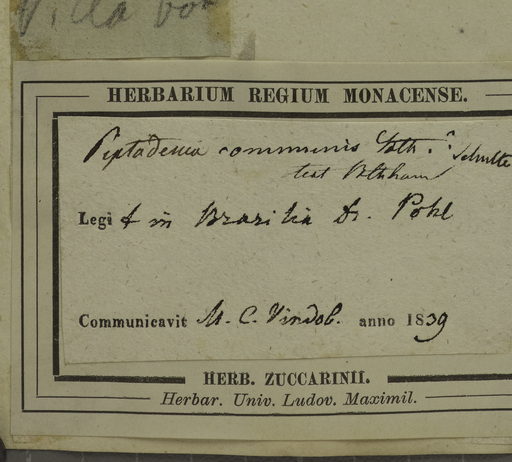 Villa
HERBARIUM REGIUM MONACENSE.
Piptadenia communis
test Bthham
Legit in Brasilia Dr. Pohl
Communicavit M. C. Vindob. anno 1839
HERB. ZUCCARINII.
Herbar. Univ. Ludov. Maximil.